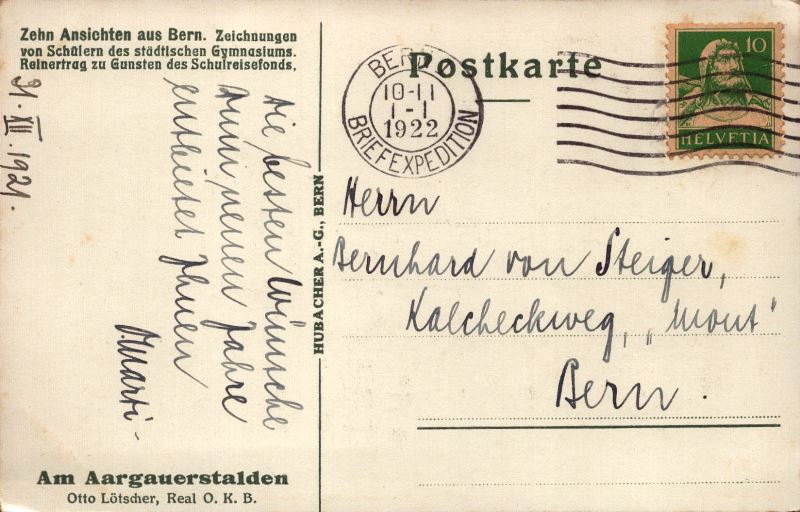 Zehn Ansichten aus Bern. Zeichnungen
von Schülern des städtischen Gymnasiums.
Reinertrag zu Gunsten des Schulreisefonds.
31. XII. 1921.
Die besten Wünsche
zum neuen Jahre
entbietet Ihnen
Marti
Am Aargauerstalden
Otto Lötscher, Real O. K. B.
HUBACHER A.-G., BERN
Postkarte
BERN
10-11
1-1
1922
BRIEFEXPEDITION
10
HELVETIA
Herrn
Bernhard von Steiger,
Kalcheckweg, „Mont"
Bern.